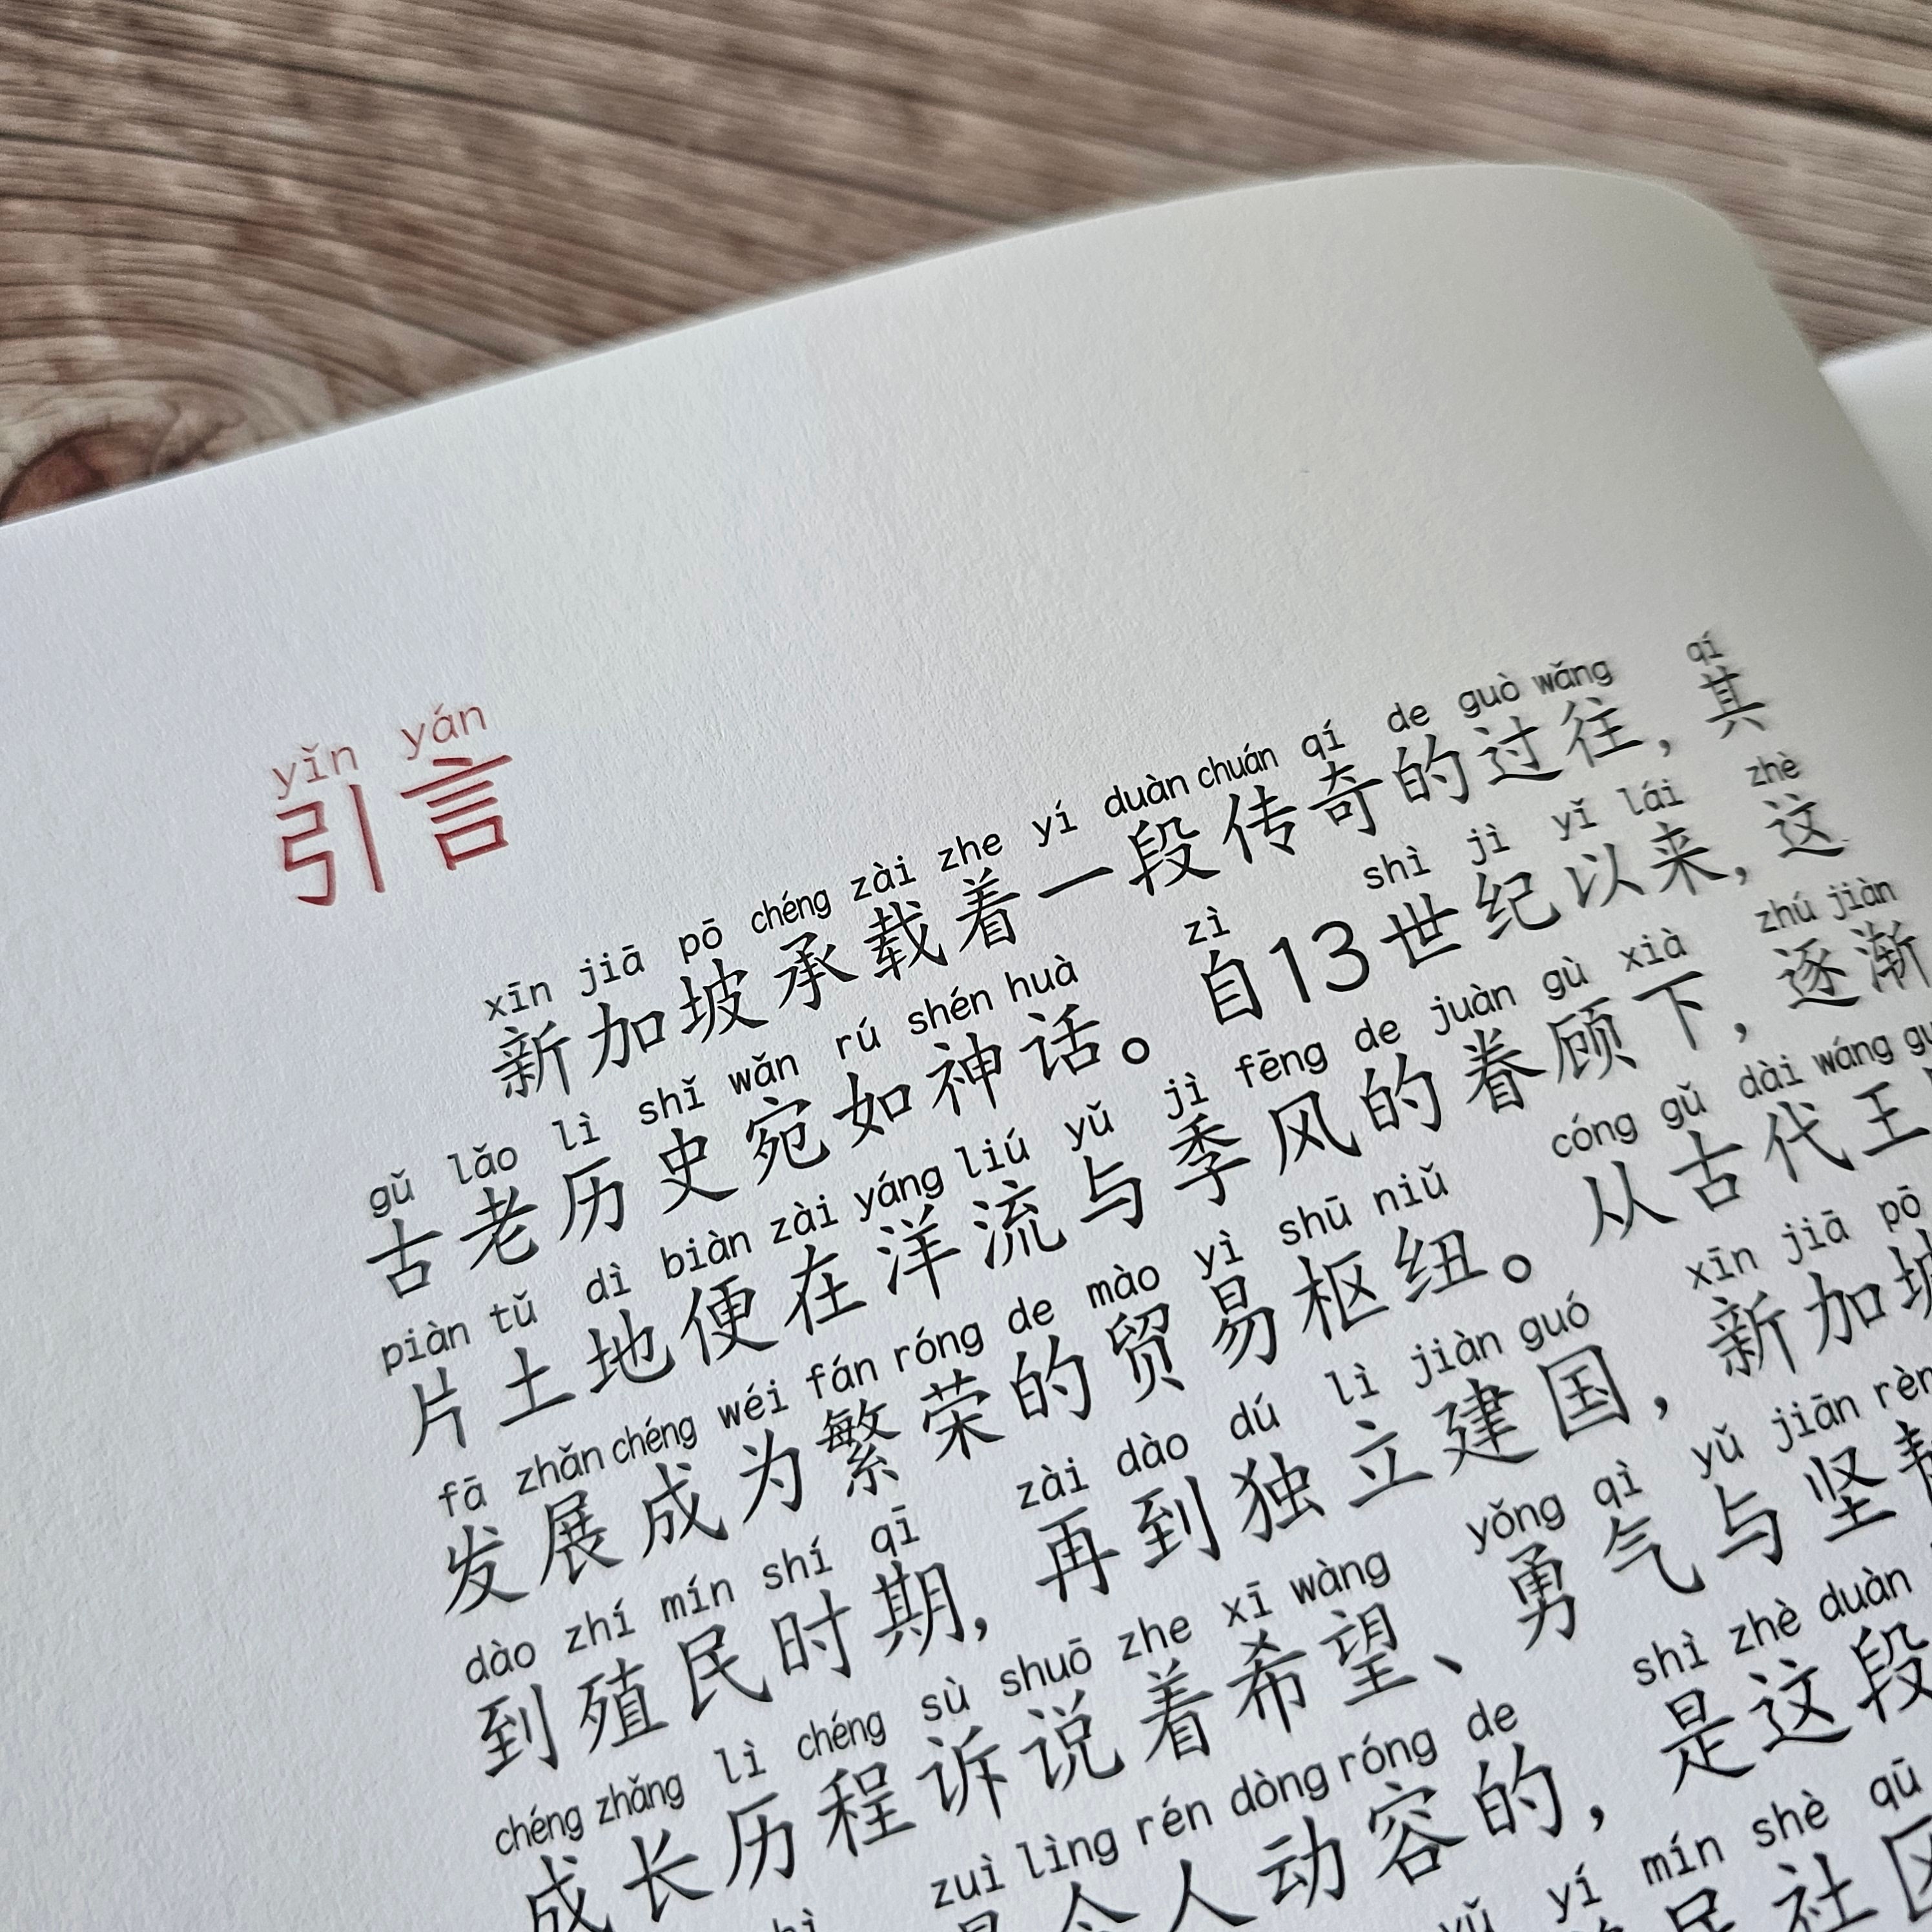 yǐn yán
引言
xīn jiā pō chéng zài zhe yí duàn chuán qí de guò wǎng qí
新加坡承载着一段传奇的过往，其
gǔ lǎo lì shǐ wǎn rú shén huà zì shì jì yǐ lái zhè
古老历史宛如神话。自13世纪以来，这
piàn tǔ dì biàn zài yáng liú yǔ jì fēng de juàn gù xià zhú jiàn
片土地便在洋流与季风的眷顾下，逐渐
fā zhǎn chéng wéi fán róng de mào yì shū niǔ cóng gǔ dài wáng
发展成为繁荣的贸易枢纽。从古代王
dào zhí mín shí qī zài dào dú lì jiàn guó xīn jiā pō
到殖民时期，再到独立建国，新加坡
chéng zhǎng lì chéng sù shuō zhe xī wàng yǒng qì yǔ jiān rèn
成长历程诉说着希望、勇气与坚韧
zuì lìng rén dòng róng de shì zhè duàn
最令人动容的，是这段
yǔ yí mín shè qū
民社区